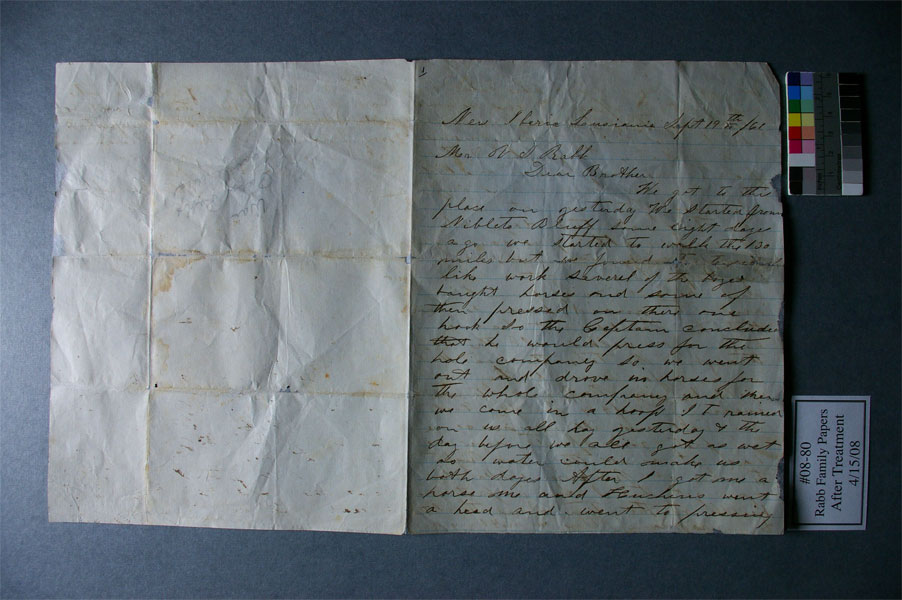 1
New Iberia Louisiania Sept 19th /61
Mr V S Rabb
Dear Brother
We got to this
place on yesterday We started from
Niblets Bluff some eight days
ago we started to walk the 130
miles but we found it to
like work several of the boys
bought horses and some of
them pressed on there one
hook So the Captain concluded
that he would press for the
hole company so we went
out and drove in horses for
the whole company and then
we come in a hoop It rained
on us all day yesterday & the
day before we all got as wet
as water could make us
both days After I got me a
horse me and Huchens went
a head and went to pressing
#08-80
Rabb Family Papers
After Treatment
4/15/08